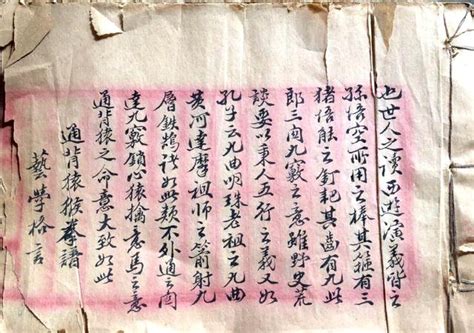 也世人之读西遊演義皆云
孫悟空所用之棒其箍有三
猪悟能之釘耙其齒有九此
郎三関九竅之意雖野史荒
談要以秉人五行之義又如
孔子云九曲明珠老祖云九曲
黄河達摩祖師云箭射九
層鉄鼓诸如此類不外通三関
達九竅鎖心猿擒意馬之意
通背猿之命意大致如此
通背猿猴拳譜
藝學格言